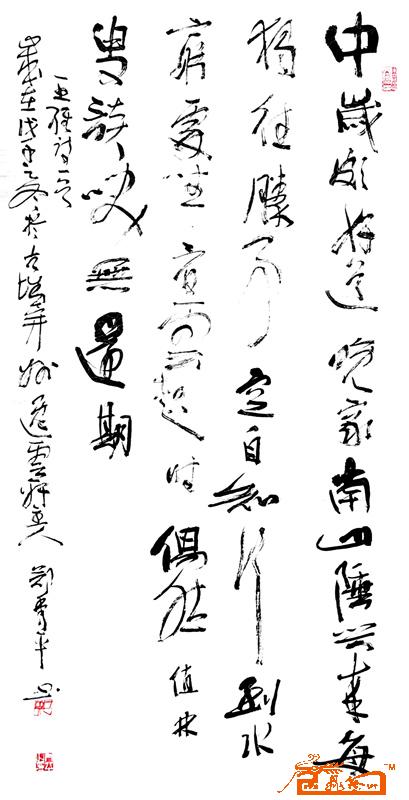 中歲頗好道晚家南山陲兴來每
獨往勝事空自知行到水
窮處坐看雲起时偶然值林
叟談笑無還期
王維詩一首
歲在戊子之冬於古瑞